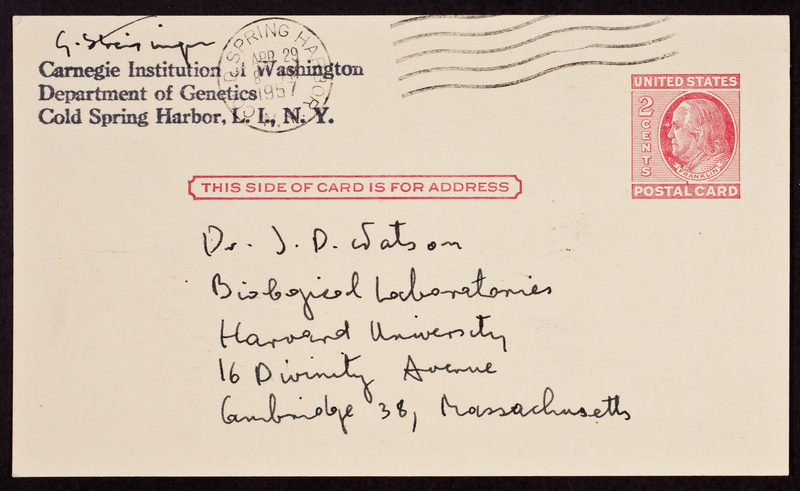 G. Streisinger
Carnegie Institution of Washington
Department of Genetics
Cold Spring Harbor, L. I., N. Y.
COLD SPRING HARBOR
APR 29
1957
N.Y.
UNITED STATES
2 CENTS
FRANKLIN
POSTAL CARD
THIS SIDE OF CARD IS FOR ADDRESS
Dr. J. D. Watson
Biological Laboratories
Harvard University
16 Divinity Avenue
Cambridge 38, Massachusetts